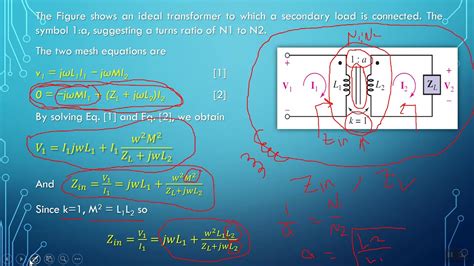 The Figure shows an ideal transformer to which a secondary load is connected. The
symbol 1:a, suggesting a turns ratio of N1 to N2.
The two mesh equations are
v₁ = jωL₁I₁ − jωMI₂ [1]
0 = −jωMI₁ + (Z_L + jωL₂)I₂ [2]
By solving Eq. [1] and Eq. [2], we obtain
V₁ = I₁jwL₁ + I₁ w²M²/(Z_L+jwL₂)
And Z_in = V₁/I₁ = jwL₁ + w²M²/(Z_L+jwL₂)
Since k=1, M² = L₁L₂ so
Z_in = V₁/I₁ = jwL₁ + w²L₁L₂/(Z_L+jwL₂)
N₁:N₂
1 : a
V₁ I₁ L₁ L₂ I₂ Z_L V₂
k = 1
Zin
Zin